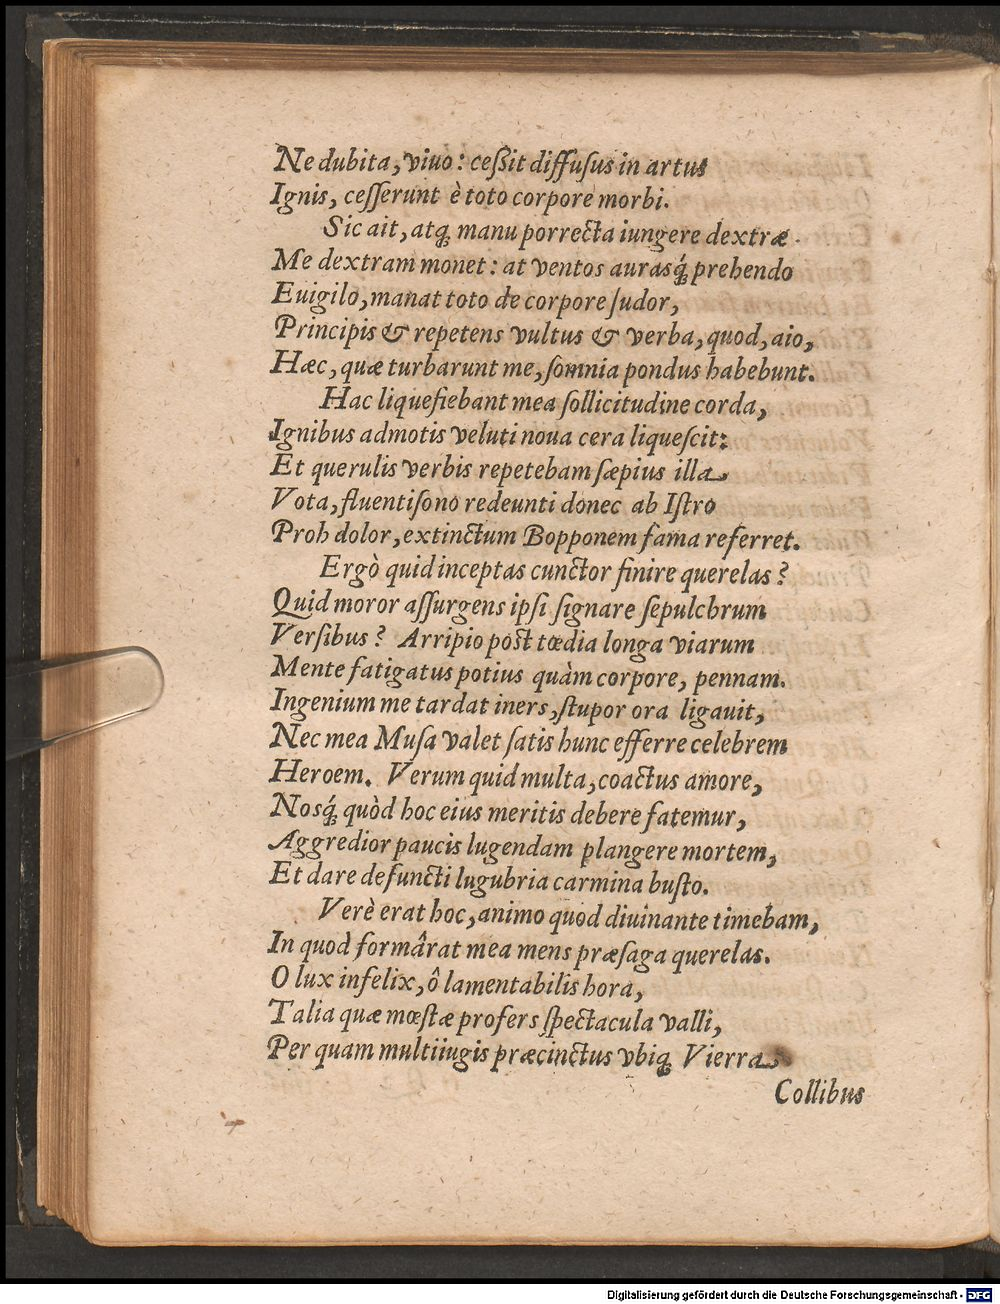 Ne dubita, viuo: ceßit diffuſus in artus
Ignis, ceſſerunt è toto corpore morbi.
Sic ait, atq; manu porrecta iungere dextræ.
Me dextram monet: at ventos aurasq́; prehendo
Euigilo, manat toto de corpore ſudor,
Principis & repetens vultus & verba, quod, aio,
Hæc, quæ turbarunt me, ſomnia pondus habebunt.
Hac liquefiebant mea ſollicitudine corda,
Ignibus admotis veluti noua cera liqueſcit:
Et querulis verbis repetebam ſæpius illa
Vota, fluentiſono redeunti donec ab Iſtro
Proh dolor, extinctum Bopponem fama referret.
Ergò quid inceptas cunctor finire querelas?
Quid moror aſſurgens ipſi ſignare ſepulchrum
Verſibus? Arripio poſt tœdia longa viarum
Mente fatigatus potius quàm corpore, pennam.
Ingenium me tardat iners, ſtupor ora ligauit,
Nec mea Muſa valet ſatis hunc efferre celebrem
Heroem. Verum quid multa, coactus amore,
Nosq́; quòd hoc eius meritis debere fatemur,
Aggredior paucis lugendam plangere mortem,
Et dare defuncti lugubria carmina buſto.
Verè erat hoc, animo quod diuinante timebam,
In quod formârat mea mens præſaga querelas.
O lux infelix, ô lamentabilis hora,
Talia quæ mœſtæ profers ſpectacula valli,
Per quam multiiugis præcinctus vbiq; Vierra
Collibus
Digitalisierung gefördert durch die Deutsche Forschungsgemeinschaft - DFG